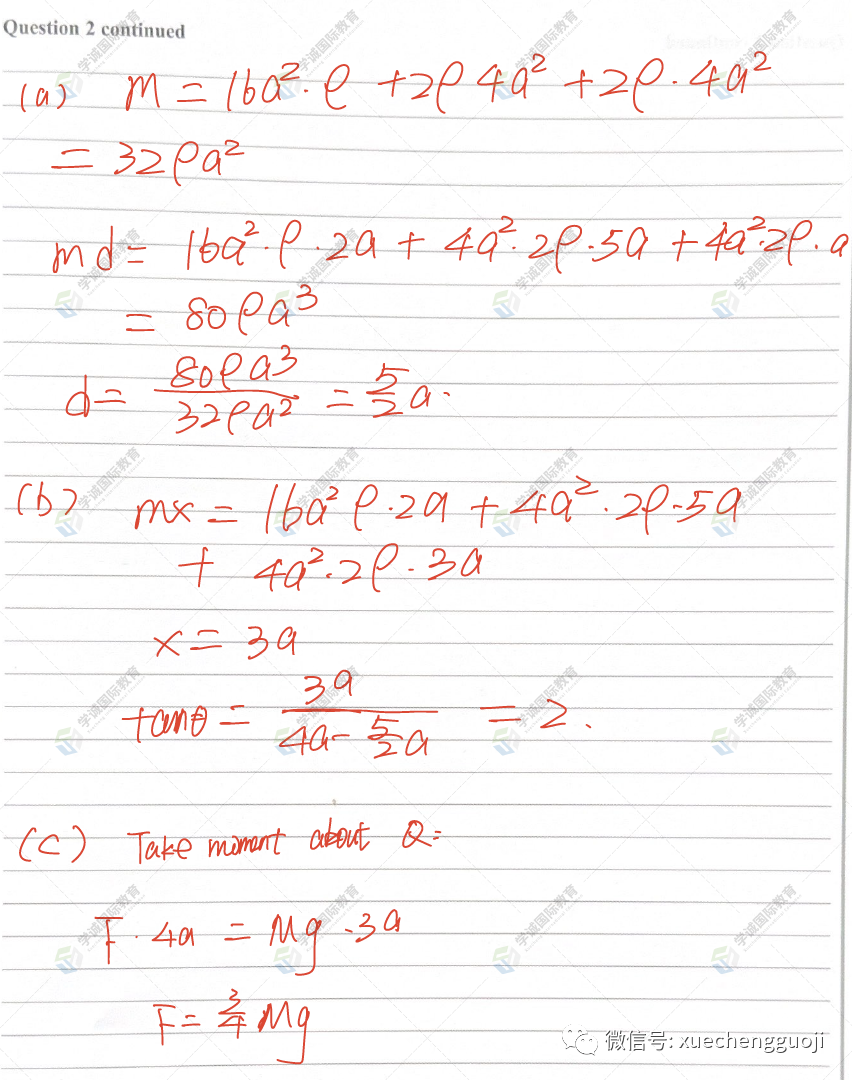 Question 2 continued
(a) M = 16a²·ρ + 2ρ 4a² + 2ρ·4a²
= 32ρa²
md = 16a²·ρ·2a + 4a²·2ρ·5a + 4a²·2ρ·a
= 80ρa³
d = 80ρa³/32ρa² = 5/2 a.
(b) mx = 16a²ρ·2a + 4a²·2ρ·5a
+ 4a²·2ρ·3a
x = 3a
tanθ = 3a/(4a - 5/2 a) = 2.
(c) Take moment about Q:
F·4a = Mg·3a
F = 3/4 Mg
微信号: xuechengguoji
学诚国际教育